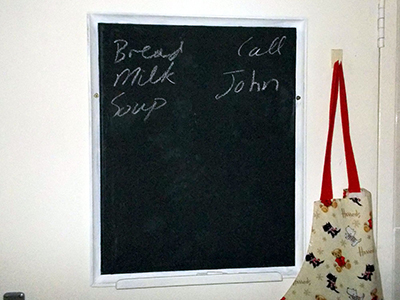 Bread
Milk
Soup
Call
John
Harrods